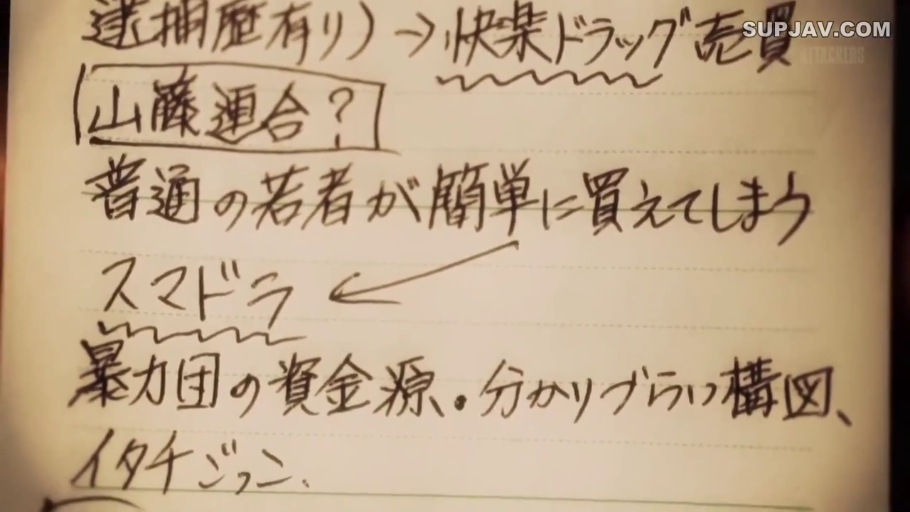 SUPJAV.COM
ATTACKERS
逮捕歴有り)→快楽ドラッグ売買
山藤連合?
普通の若者が簡単に買えてしまう
スマドラ
暴力団の資金源、・分かりづらい構図、
イタチごっこ、